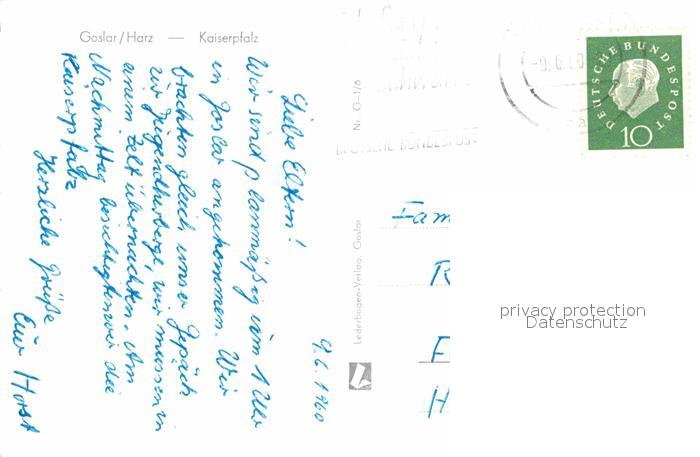 Goslar/Harz — Kaiserpfalz
9.6.1960
Liebe Eltern!
Wir sind planmäßig um 1 Uhr
in Goslar angekommen. Wir
brachten gleich unser Gepäck
zur Jugendherberge, wir müssen in
einem Zelt übernachten. Am
Nachmittag besichtigten wir die
Kaiserpfalz
Herzliche Grüße
Euer Horst
Nr. G-1/6
Lederbogen-Verlag, Goslar
DEUTSCHE BUNDESPOST
DEUTSCHE BUNDESPOST
10
Fam
R
F
H
privacy protection
Datenschutz